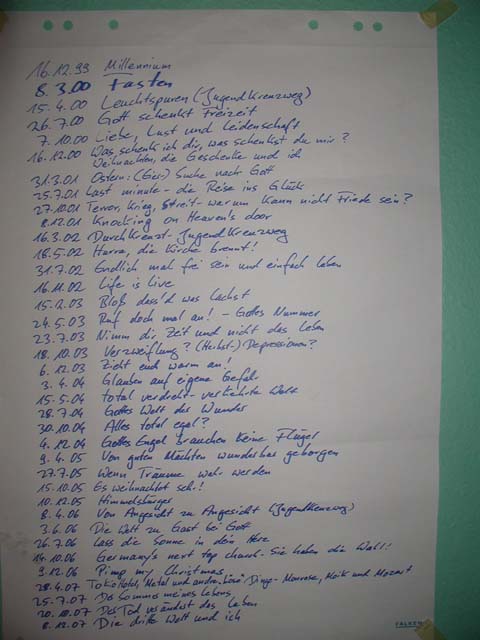 16.12.99 Millennium
8.3.00 Fasten
15.4.00 Leuchtspuren (Jugendkreuzweg)
26.7.00 Gott schenkt Freizeit
7.10.00 Liebe, Lust und Leidenschaft
16.12.00 Was schenk ich dir, was schenkst du mir?
Weihnachten, die Geschenke und ich
31.3.01 Ostern: (Eier-) Suche nach Gott
25.7.01 Last minute - die Reise ins Glück
27.10.01 Terror, Krieg, Streit - warum kann nicht Friede sein?
8.12.01 Knocking on Heaven's door
16.3.02 DurchKreuzt - Jugendkreuzweg
18.5.02 Hurra, die Kirche brennt!
31.7.02 Endlich mal frei sein und einfach leben
16.11.02 Life is live
15.2.03 Bloß dass'd was lachst
24.5.03 Ruf doch mal an! - Gottes Nummer
23.7.03 Nimm dir Zeit und nicht das Leben
18.10.03 Verzweiflung? (Herbst-) Depressionen?
6.12.03 Zieht euch warm an!
3.4.04 Glauben auf eigene Gefahr
15.5.04 total verdreht - verkehrte Welt
28.7.04 Gottes Welt der Wunder
30.10.04 Alles total egal?
4.12.04 Gottes Engel brauchen keine Flügel
9.4.05 Von guten Mächten wunderbar geborgen
27.7.05 Wenn Träume wahr werden
15.10.05 Es weihnachtet sehr!
10.12.05 Himmelsbürger
8.4.06 Von Angesicht zu Angesicht (Jugendkreuzweg)
3.6.06 Die Welt zu Gast bei Gott
26.7.06 Lass die Sonne in dein Herz
14.10.06 Germany's next top church - Sie haben die Wahl!
9.12.06 Pimp my Christmas
28.4.07 Tokio Hotel, Metal und andre "böse" Dinge - Monrose, Maik und Mozart
25.7.07 Der Sommer meines Lebens
20.10.07 Der Tod verändert das Leben
8.12.07 Die dritte Welt und ich
FALKEN